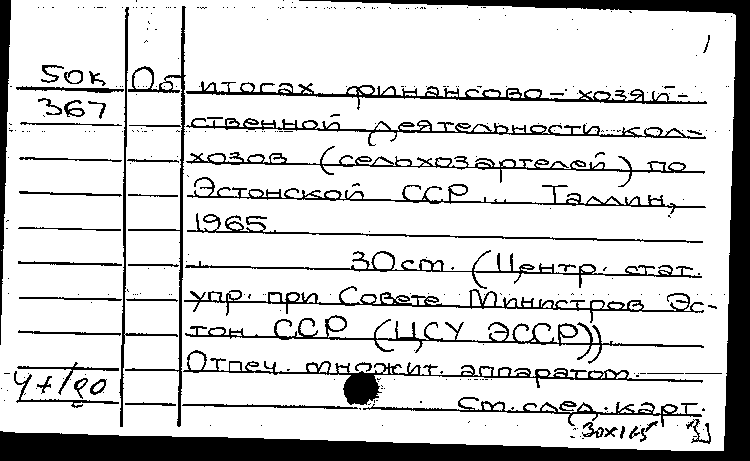 1
50к Об итогах финансово-хозяй-
367 ственной деятельности кол-
хозов (сельхозартелей) по
Эстонской ССР... Таллин,
1965.
30 cm. (Центр. стат.
упр. при Совете Министров Эс-
тон. ССР (ЦСУ ЭССР))
Отпеч. множит. аппаратом.
Ст. след. карт.
30x165